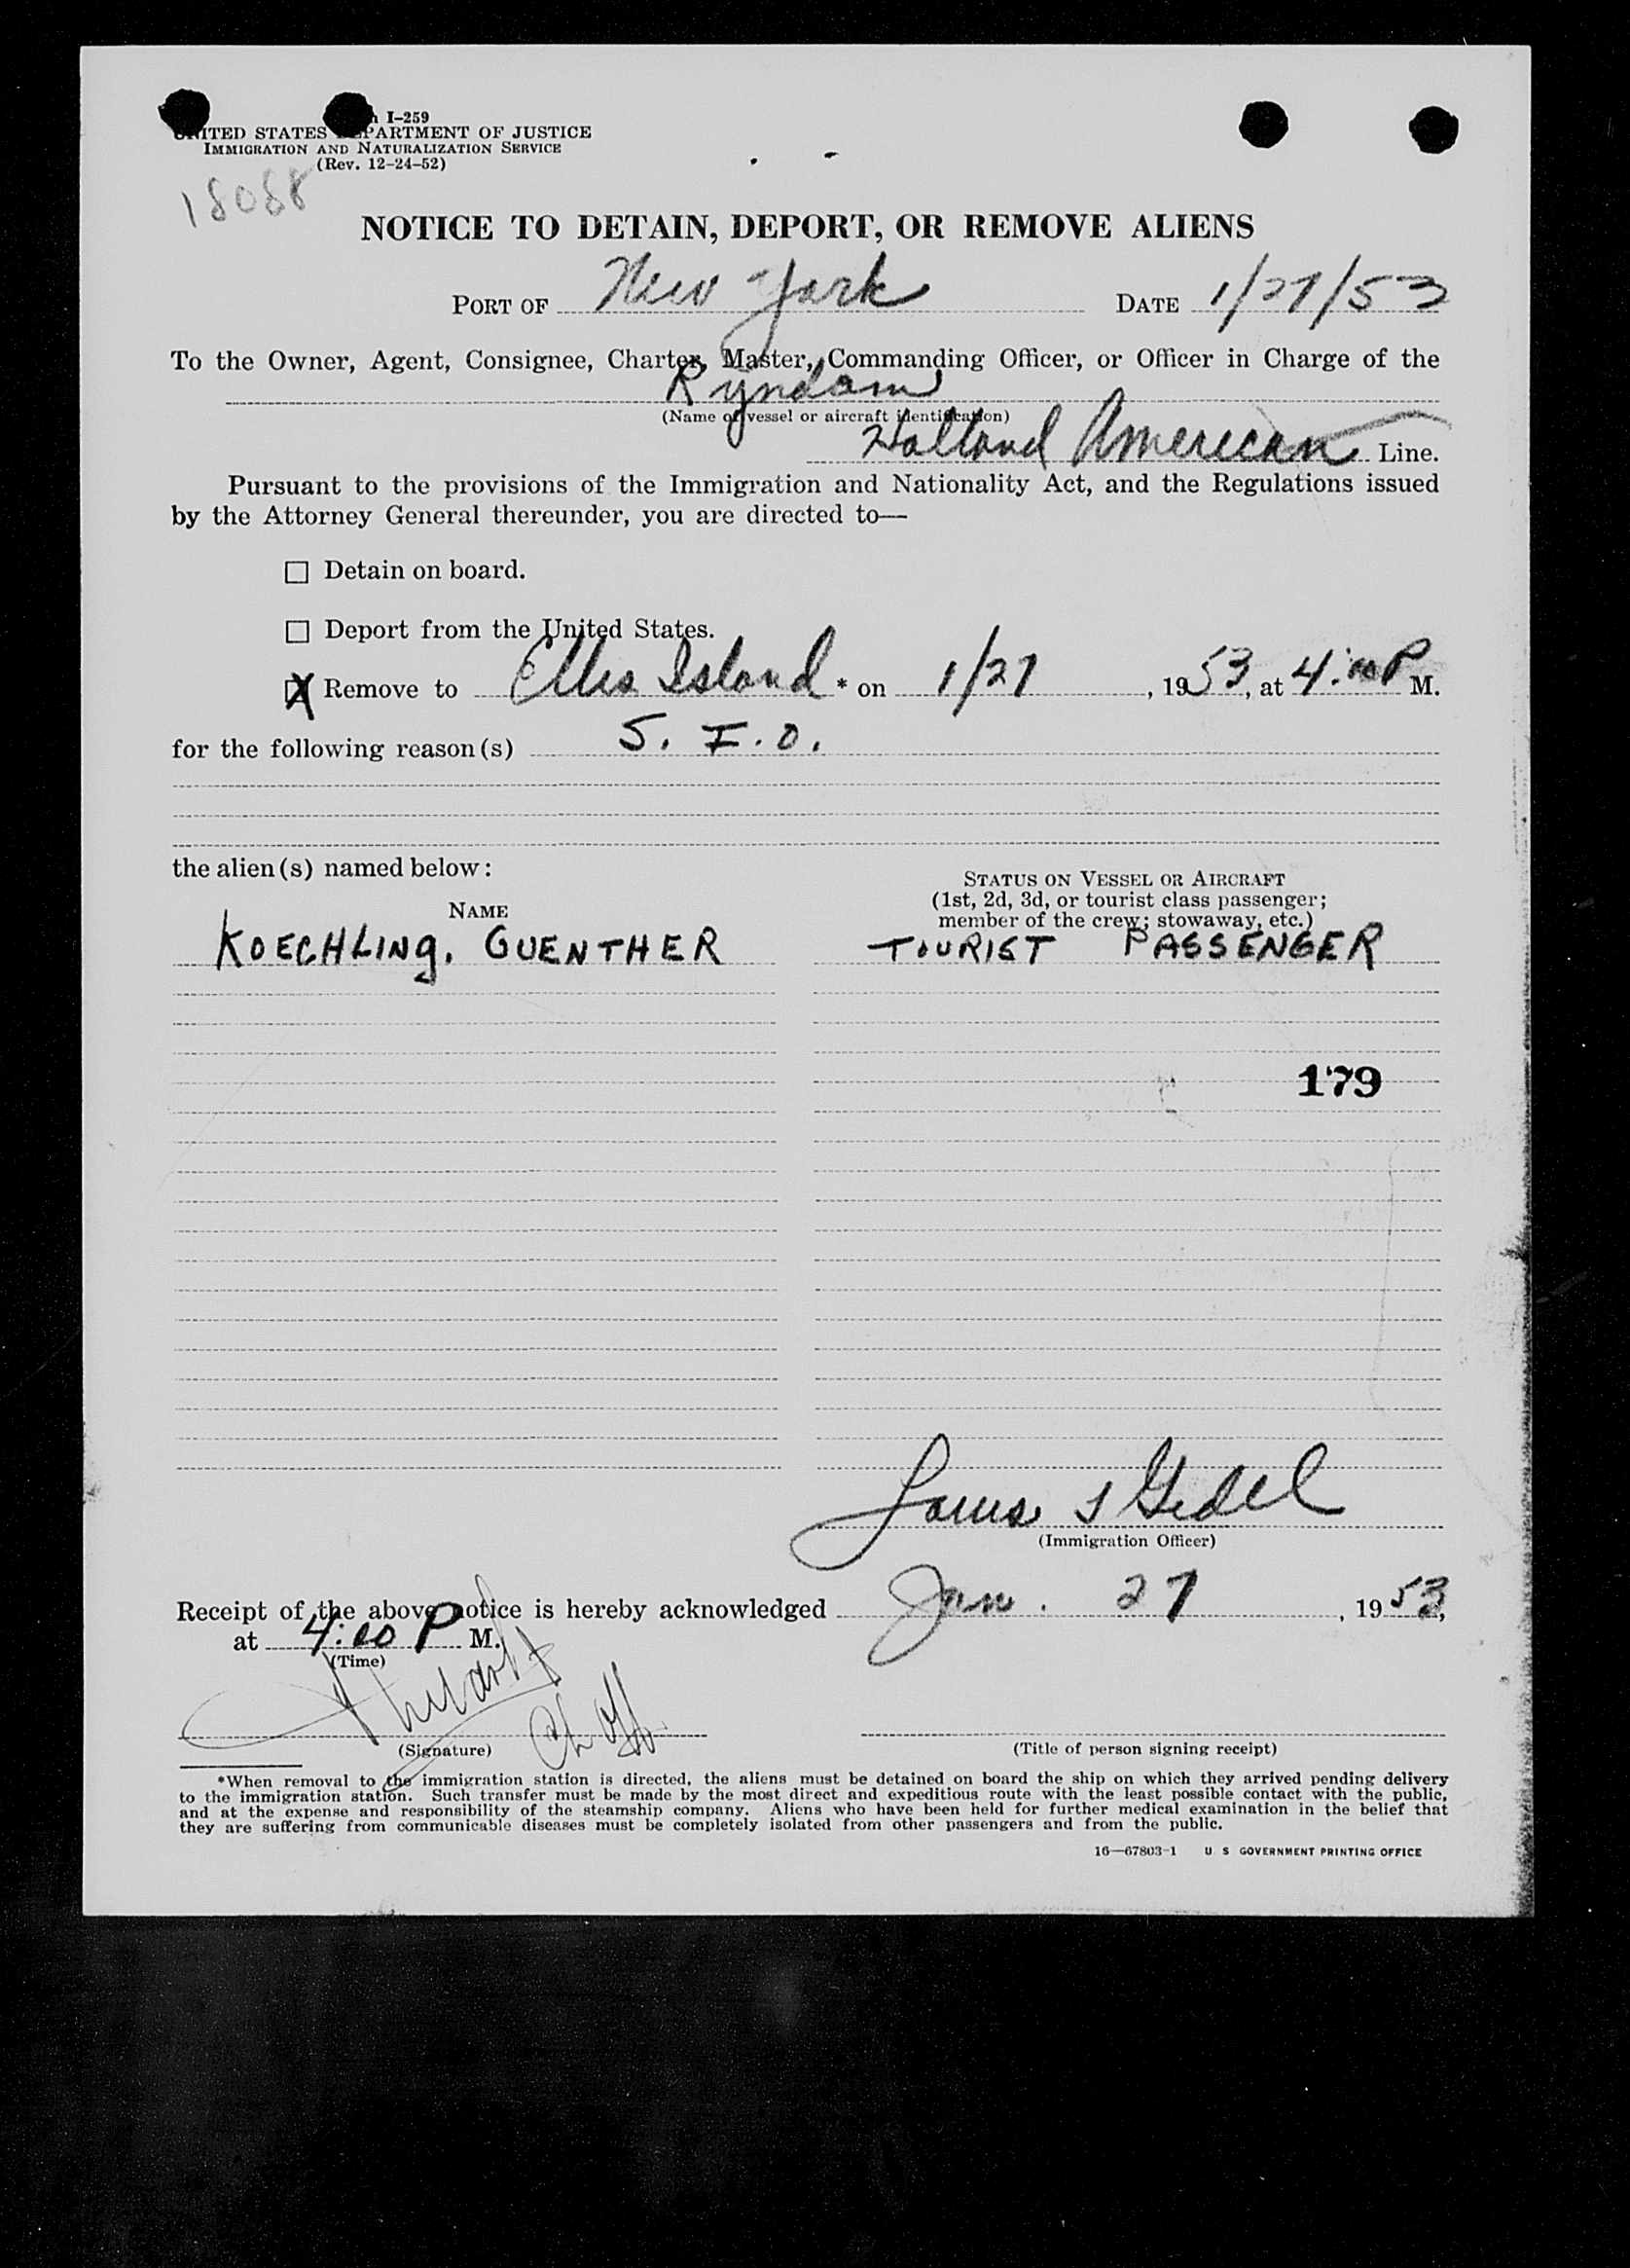 I-259
UNITED STATES DEPARTMENT OF JUSTICE
IMMIGRATION AND NATURALIZATION SERVICE
(Rev. 12-24-52)
18088
NOTICE TO DETAIN, DEPORT, OR REMOVE ALIENS
PORT OF New York DATE 1/27/53
To the Owner, Agent, Consignee, Charter, Master, Commanding Officer, or Officer in Charge of the
Ryndam
(Name of vessel or aircraft identification)
Holland American Line.
Pursuant to the provisions of the Immigration and Nationality Act, and the Regulations issued
by the Attorney General thereunder, you are directed to—
☐ Detain on board.
☐ Deport from the United States.
X Remove to Ellis Island * on 1/27, 1953, at 4:00 P M.
for the following reason(s) S. I. O.
the alien(s) named below:
STATUS ON VESSEL OR AIRCRAFT
(1st, 2d, 3d, or tourist class passenger;
member of the crew; stowaway, etc.)
NAME
KOECHLING, GUENTHER TOURIST PASSENGER
179
(Immigration Officer)
Receipt of the above notice is hereby acknowledged Jan. 27, 1953,
at 4:00 P M.
(Time)
Ch Off
(Signature) (Title of person signing receipt)
*When removal to the immigration station is directed, the aliens must be detained on board the ship on which they arrived pending delivery
to the immigration station. Such transfer must be made by the most direct and expeditious route with the least possible contact with the public,
and at the expense and responsibility of the steamship company. Aliens who have been held for further medical examination in the belief that
they are suffering from communicable diseases must be completely isolated from other passengers and from the public.
16—67803-1 U S GOVERNMENT PRINTING OFFICE